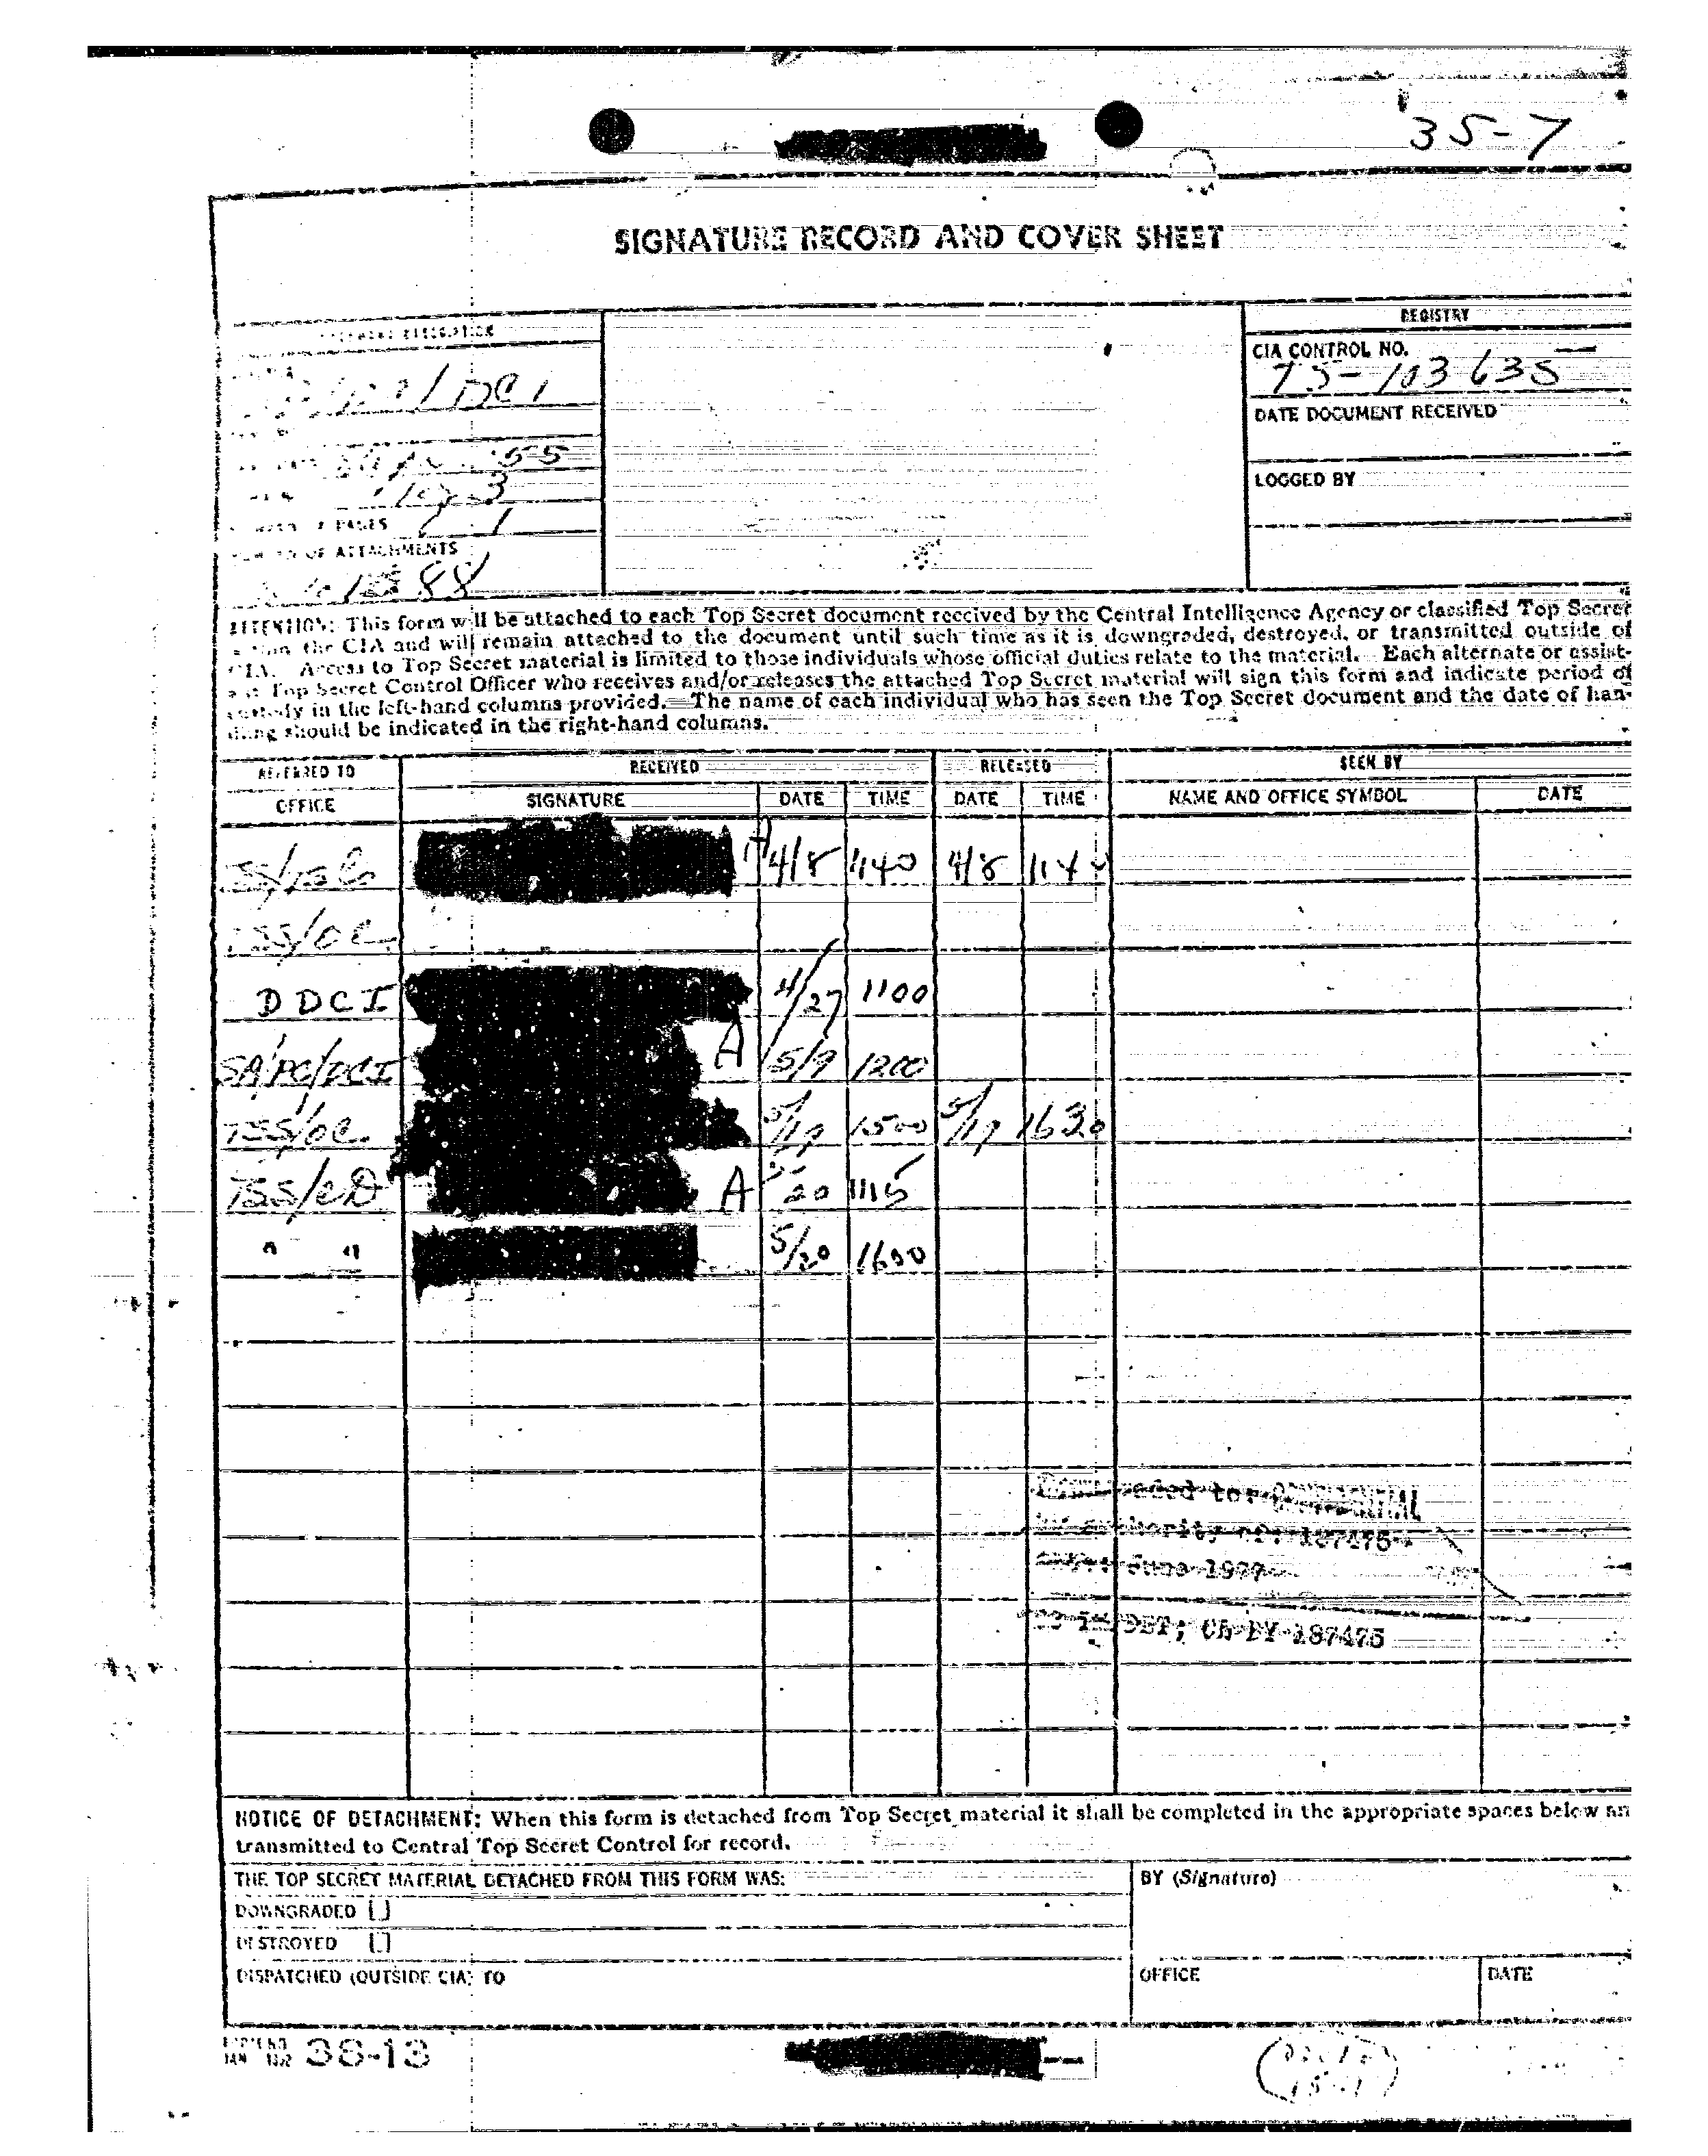 35-7
SIGNATURE RECORD AND COVER SHEET
REGISTRY
CIA CONTROL NO.
75-103635
DATE DOCUMENT RECEIVED
LOGGED BY
/DCI
55
3
PAGES
1
OF ATTACHMENTS
88
ATTENTION: This form will be attached to each Top Secret document received by the Central Intelligence Agency or classified Top Secret
the CIA and will remain attached to the document until such time as it is downgraded, destroyed, or transmitted outside of
CIA. Access to Top Secret material is limited to those individuals whose official duties relate to the material. Each alternate or assist-
Top Secret Control Officer who receives and/or releases the attached Top Secret material will sign this form and indicate period of
custody in the left-hand columns provided. The name of each individual who has seen the Top Secret document and the date of han-
dling should be indicated in the right-hand columns.
REFERRED TO RECEIVED RELEASED SEEN BY
OFFICE SIGNATURE DATE TIME DATE TIME NAME AND OFFICE SYMBOL DATE
4/8 1140 4/8 1140
TSS/OC
DDCI 4/27 1100
SA/PC/DCI A 5/9 1200
TSS/OC. 5/19 1500 5/19 1630
TSS/CD A 20 1115
" " 5/20 1600
to: CONFIDENTIAL
authority of: 187475
June 1977
187475
NOTICE OF DETACHMENT: When this form is detached from Top Secret material it shall be completed in the appropriate spaces below an
transmitted to Central Top Secret Control for record.
THE TOP SECRET MATERIAL DETACHED FROM THIS FORM WAS: BY (Signature)
DOWNGRADED [ ]
DESTROYED [ ]
DISPATCHED (OUTSIDE CIA) TO OFFICE DATE
38-13